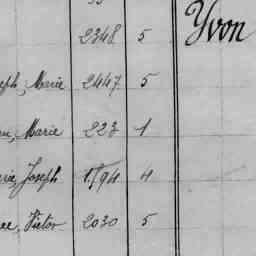 2348 5 Yvon
eph, Marie 2447 5
Marie 223 1
Joseph 94 4
Victor 2030 5